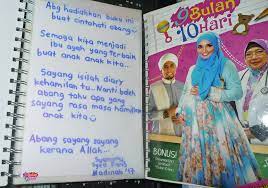 Abg hadiahkan buku ini
buat cintahati abang..
Semoga kita menjadi
ibu ayah yang terbaik
buat anak anak kita...
Sayang isilah diary
kehamilan tu.. Nanti boleh
abang tahu apa yang
sayang rasa masa hamilkan
anak kita
Abang sayang sayang
kerana Allah...
Madinah '17
9 Bulan
10 Hari
BONUS!